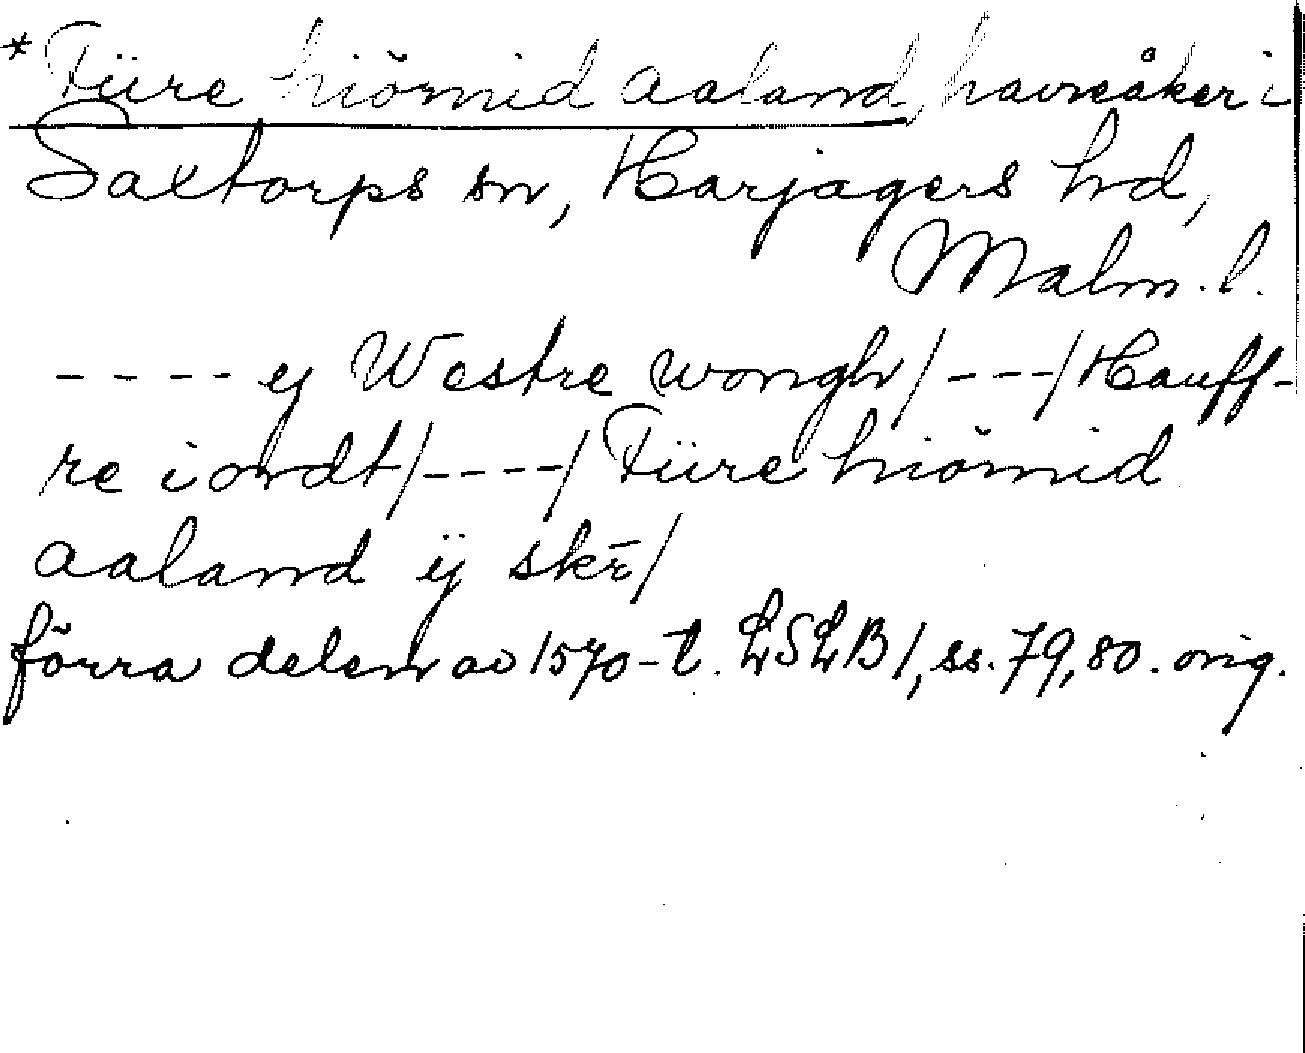 * Fiire hiörnid aaland, havreåker i
Saxtorps sn, Harjagers hd,
Malm. l.
---- ej Westre wongh/---/Hauff-
re iordt/----/Fiire hiörnid
aaland ij skr̄/
förra delen av 1570-t. LSLB 1, ss. 79, 80. orig.